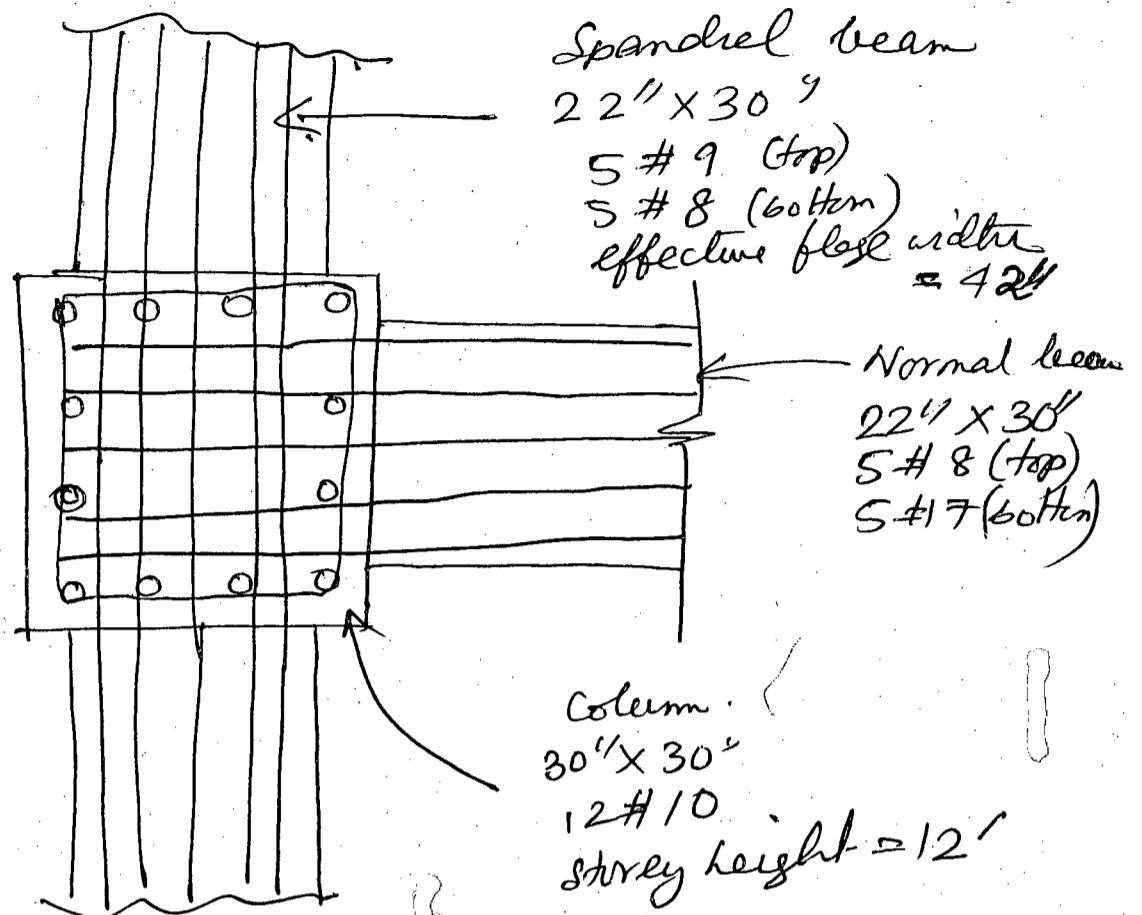 Spandrel beam
22" X 30"
5 # 9 (top)
5 # 8 (bottom)
effective flage width
= 42"
Normal beam
22" X 30"
5 # 8 (top)
5 #17 (bottom)
Column.
30" X 30"
12 # 10
storey height = 12'